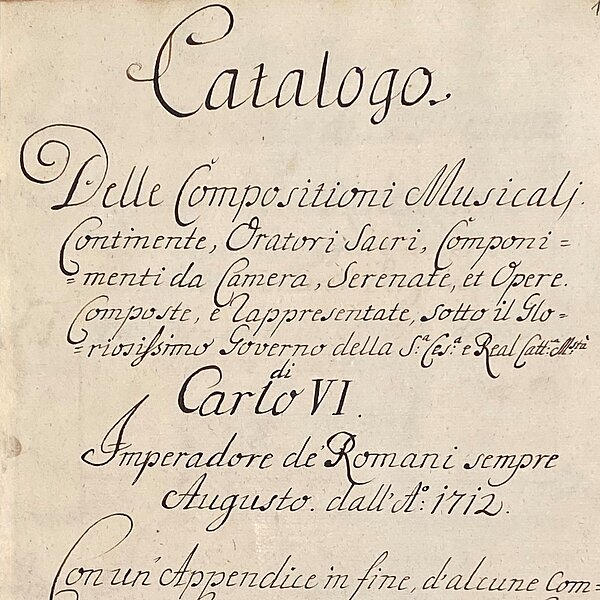 1
Catalogo.
Delle Compositioni Musicalj.
Continente, Oratori Sacri, Componi=
=menti da Camera, Serenate, et Opere.
Composte, e Rappresentate, sotto il Glo=
=riosissimo Governo della S.ª Ces.ª e Real Catt.ca M.stà
di
Carlo VI.
Imperadore de' Romani sempre
Augusto. dall'Aº. 1712.
Con un' Appendice in fine, d'alcune Com=